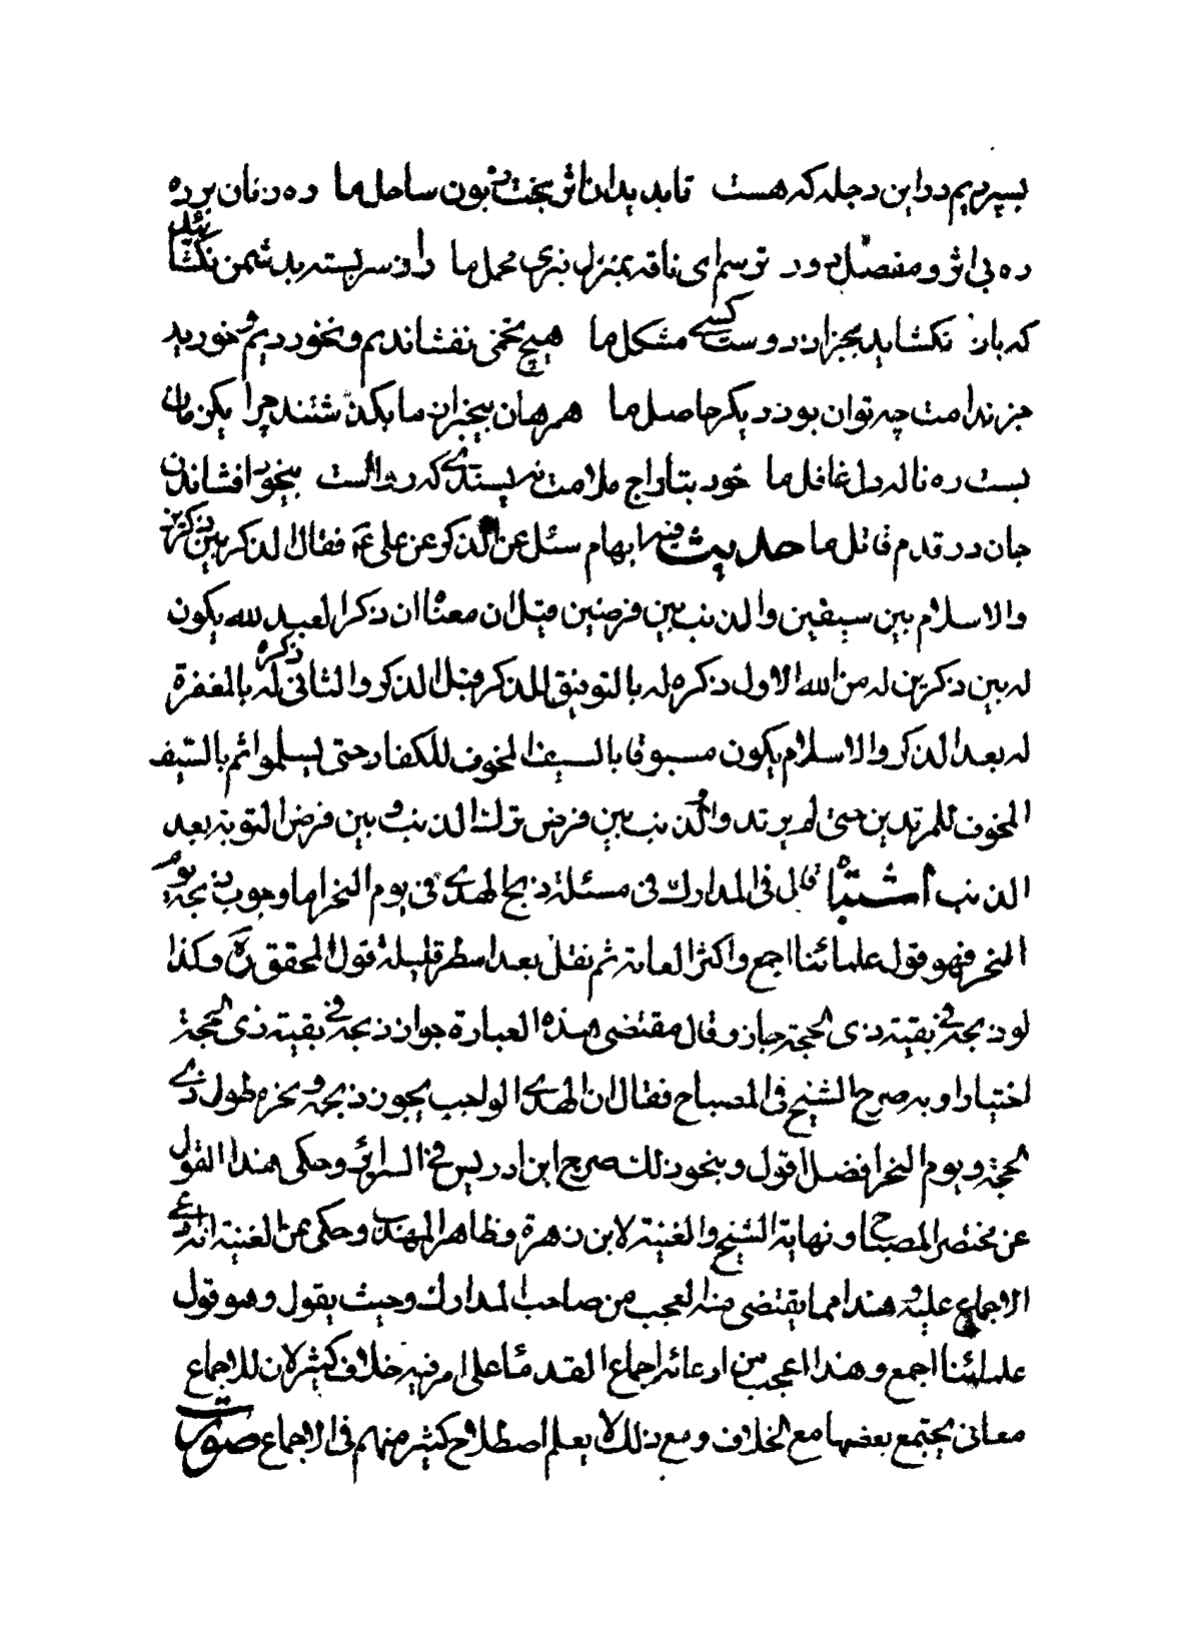 بسپریم در این دجله که هست تا بد بدان اثر بخت زبون ساحل ما ره زنان برده
ره بی اثر و مقصد دور تو سم ای ناقه بمنزل نبری محمل ما راز سر بسته بدشمن نگشائید
که باز نگشاید بجز از دوست کسی مشکل ما هیچ تخمی نفشاندیم و نخوردیم و خورید
جز ندامت چه توان بود دیگر حاصل ما همرهان بیخبر از ما بکذشتند چرا یکزمان
بست ره ناله دل غافل ما خود بتاراج ملامت نپسندی که رواست بیخود افشاندن
جان در قدم قاتل ما حدیث فیه ابهام سئل عن الذکر عن علی ع فقال الذکر بین ذکرین
والاسلام بین سیفین والذنب بین فرضین قیل ان معناه ان ذکر العبد لله یکون
له بین ذکرین له من الله الاول ذکره له بالتوفیق للذکر قبل الذکر والثانی ذکره له بالمغفرة
له بعد الذکر والاسلام یکون مسبوقا بالسیف المخوف للکفار حتی یسلموا ثم بالسیف
المخوف للمرتدین حتی لم یرتدوا والذنب بین فرض ترک الذنب و بین فرض التوبه بعد
الذنب اشتباه قال فی المدارک فی مسئلة ذبح الهدی فی یوم النحر اما وجوب ذبحه یوم
النحر فهو قول علمائنا اجمع واکثر العامة ثم نقل بعد اسطر قلیلة قول المحقق ره وکذا
لو ذبحه فی بقیة ذی الحجة جاز وقال مقتضی هذه العبارة جواز ذبحه فی بقیة ذی الحجة
اختیارا وبه صرح الشیخ فی المصباح فقال ان الهدی الواجب یجوز ذبحه ونحره طول ذی
الحجة ویوم النحر افضل اقول وبنحو ذلک صرح ابن ادریس فی السرائر وحکی هذا القول
عن مختصر المصباح ونهایة الشیخ والغنیة لابن زهرة وظاهر المهذب وحکی عن الغنیة انه ادعی
الاجماع علیه و هذا مما یقتضی منه العجب من صاحب المدارک وحیث یقول وهو قول
علمائنا اجمع وهذا اعجب من ادعائه اجماع القدماء علی امر فیه خلاف کثیر لان للاجماع
معانی یجتمع بعضها مع الخلاف ومع ذلک لا یعلم اصطلاح کثیر منهم فی الاجماع صورت